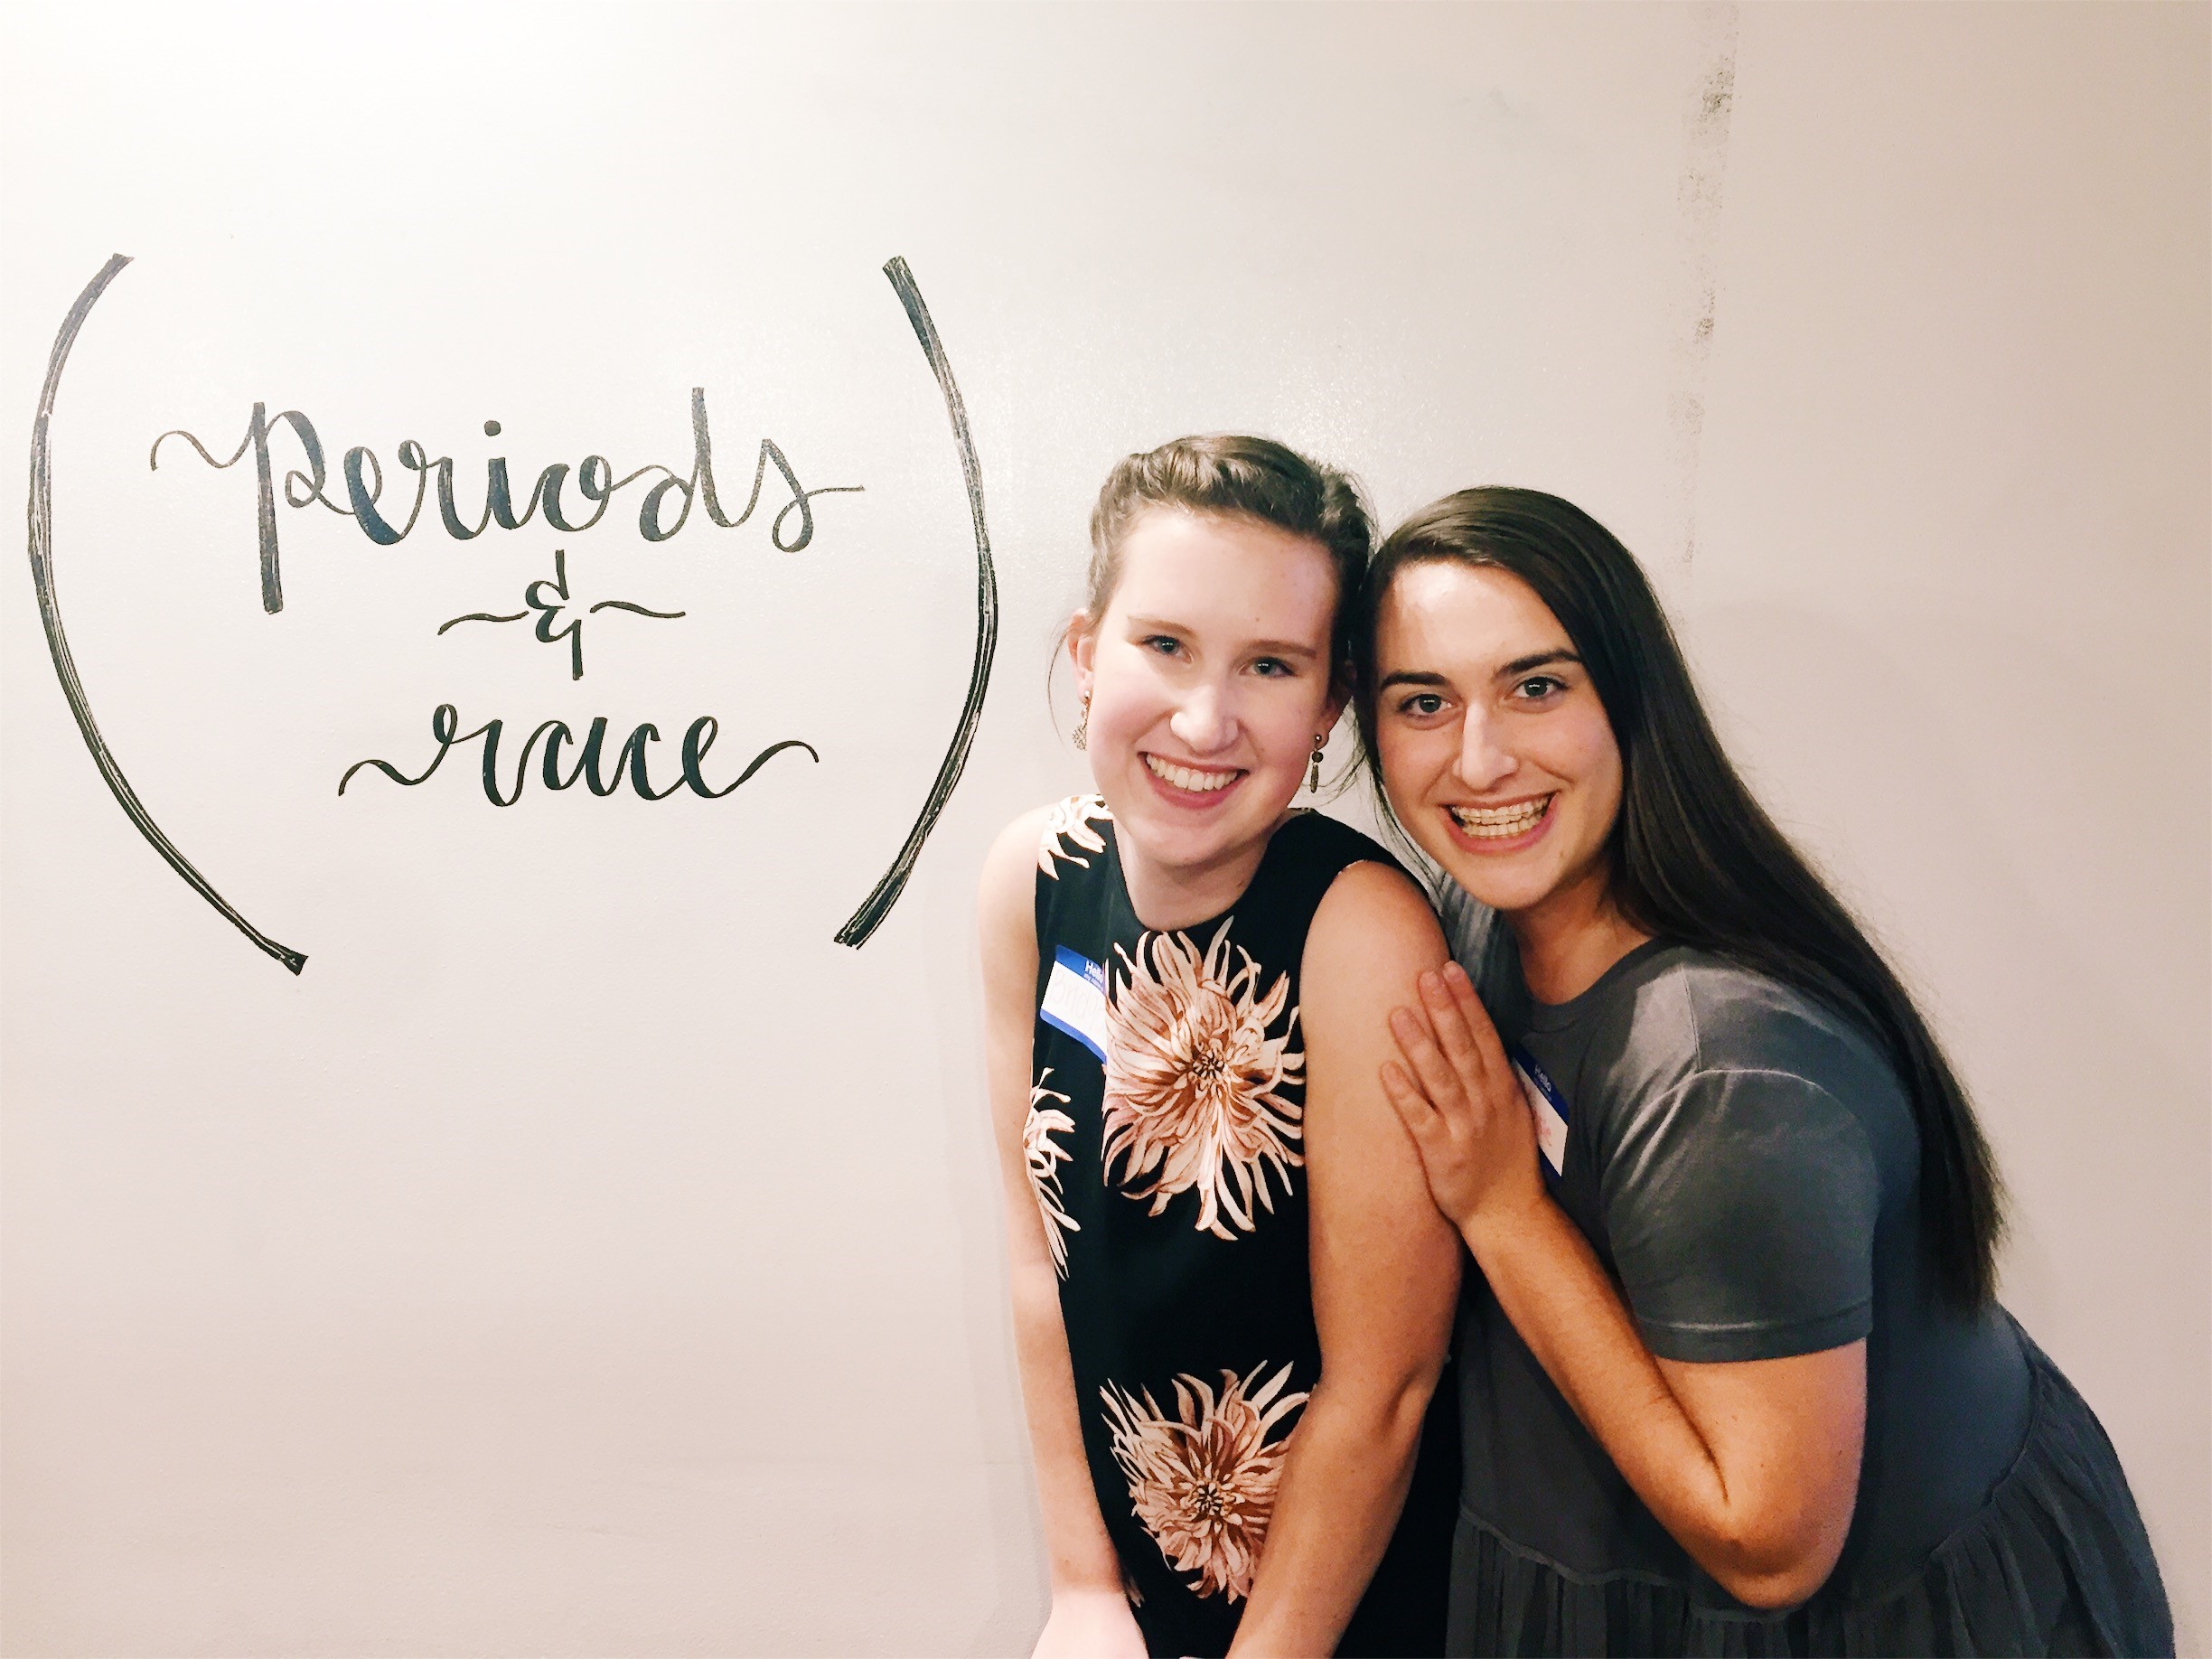 (periods
&
race)
Hello
Hello